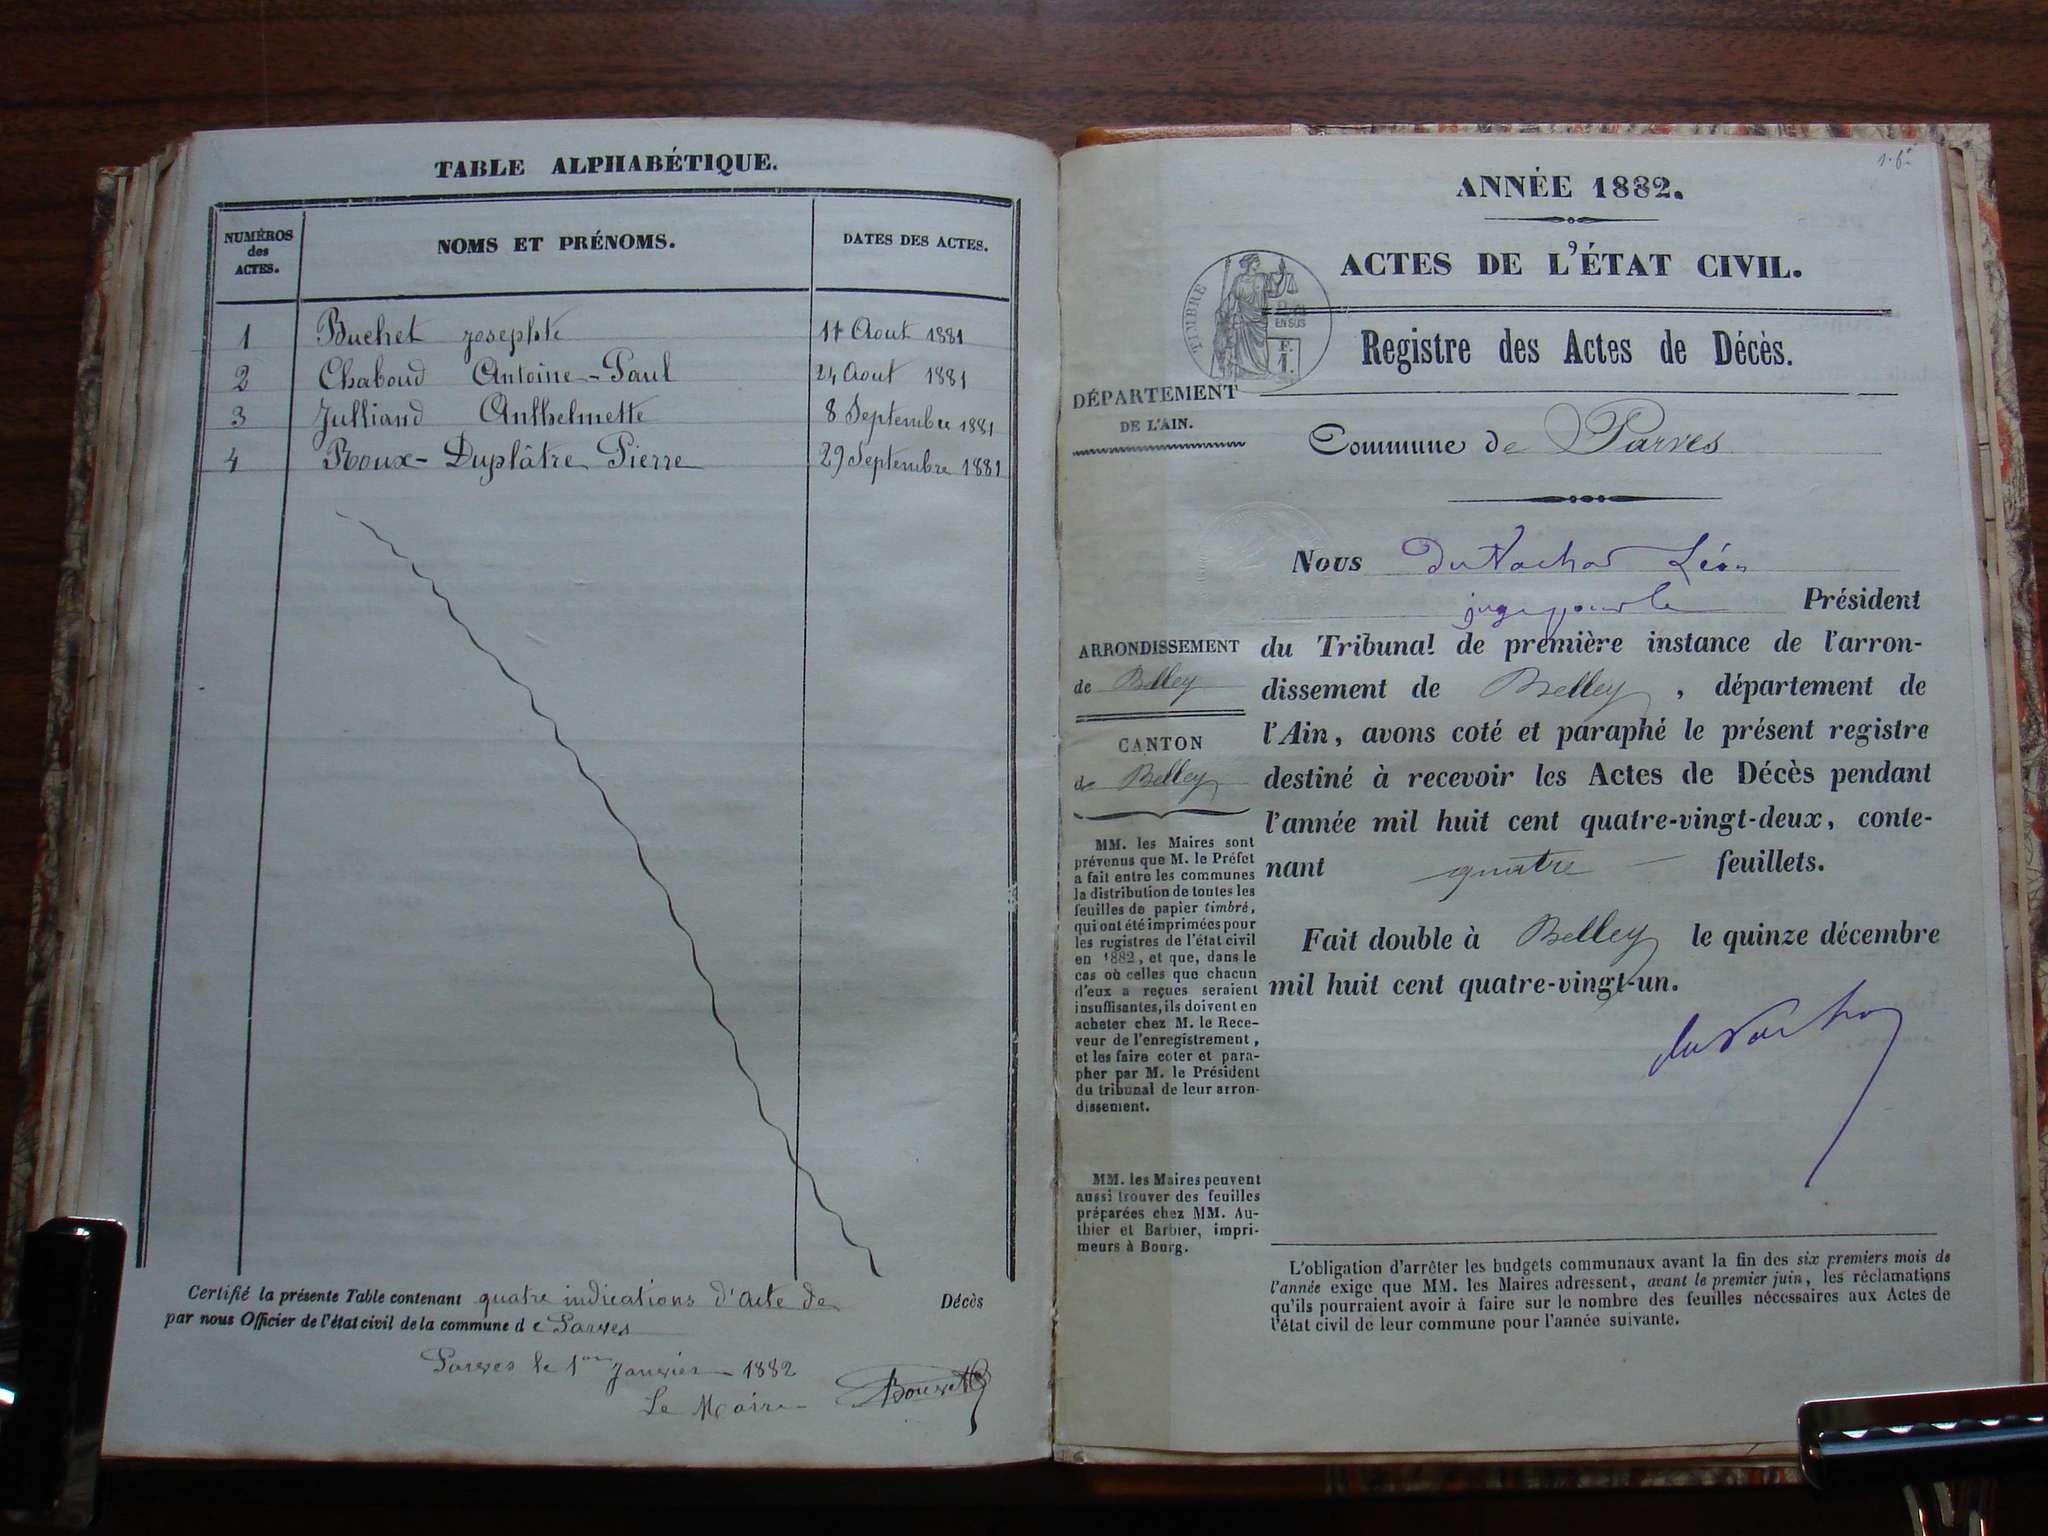 TABLE ALPHABÉTIQUE.
NUMÉROS
des
ACTES.
NOMS ET PRÉNOMS.
DATES DES ACTES.
1 Buchet Josephte 11 Aout 1881
2 Chaboud Antoine-Paul 24 Aout 1881
3 Julliand Anthelmette 8 Septembre 1881
4 Roux-Duplâtre Pierre 29 Septembre 1881
Certifié la présente Table contenant quatre indications d'Acte de Décès
par nous Officier de l'état civil de la commune de Parves
Parves le 1er Janvier 1882
Le Maire
ANNÉE 1882.
ACTES DE L'ÉTAT CIVIL.
TIMBRE
EN SUS
F.
1.
Registre des Actes de Décès.
DÉPARTEMENT
DE L'AIN.
Commune de Parves
Nous Léon
juge pour le Président
du Tribunal de première instance de l'arron-
dissement de Belley, département de
l'Ain, avons coté et paraphé le présent registre
destiné à recevoir les Actes de Décès pendant
l'année mil huit cent quatre-vingt-deux, conte-
nant quatre feuillets.
Fait double à Belley le quinze décembre
mil huit cent quatre-vingt-un.
ARRONDISSEMENT
de Belley
CANTON
de Belley
MM. les Maires sont
prévenus que M. le Préfet
a fait entre les communes
la distribution de toutes les
feuilles de papier timbré,
qui ont été imprimées pour
les registres de l'état civil
en 1882, et que, dans le
cas où celles que chacun
d'eux a reçues seraient
insuffisantes, ils doivent en
acheter chez M. le Rece-
veur de l'enregistrement,
et les faire coter et para-
pher par M. le Président
du tribunal de leur arron-
dissement.
MM. les Maires peuvent
aussi trouver des feuilles
préparées chez MM. Au-
thier et Barbier, impri-
meurs à Bourg.
L'obligation d'arrêter les budgets communaux avant la fin des six premiers mois de
l'année exige que MM. les Maires adressent, avant le premier juin, les réclamations
qu'ils pourraient avoir à faire sur le nombre des feuilles nécessaires aux Actes de
l'état civil de leur commune pour l'année suivante.